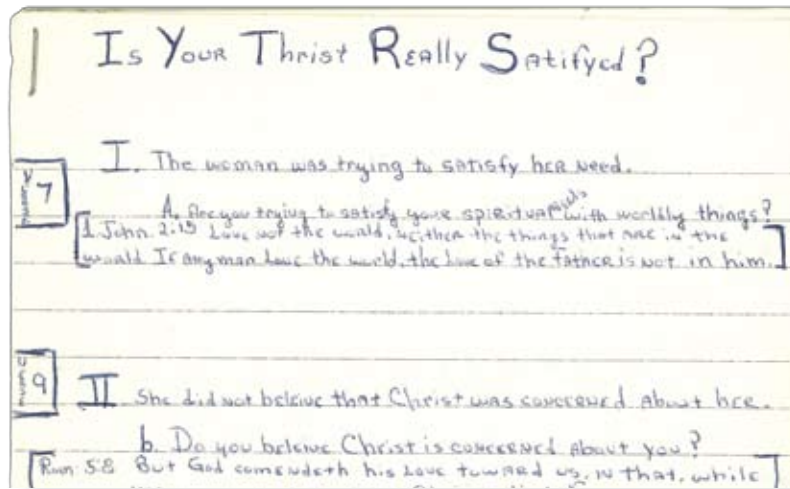 Is Your Thrist Really Satifyed?
I. The woman was trying to satisfy her need.
Verse 7
A. Are you trying to satisfy your spiritual needs with worldly things?
[1 John 2:15 Love not the world, neither the things that are in the
world If any man love the world, the love of the father is not in him.]
Verse 9
II She did not beleive that Christ was concerned about her.
b. Do you beleive Christ is concerned about you?
[Rom 5:8 But God comendeth his love toward us, in that, while